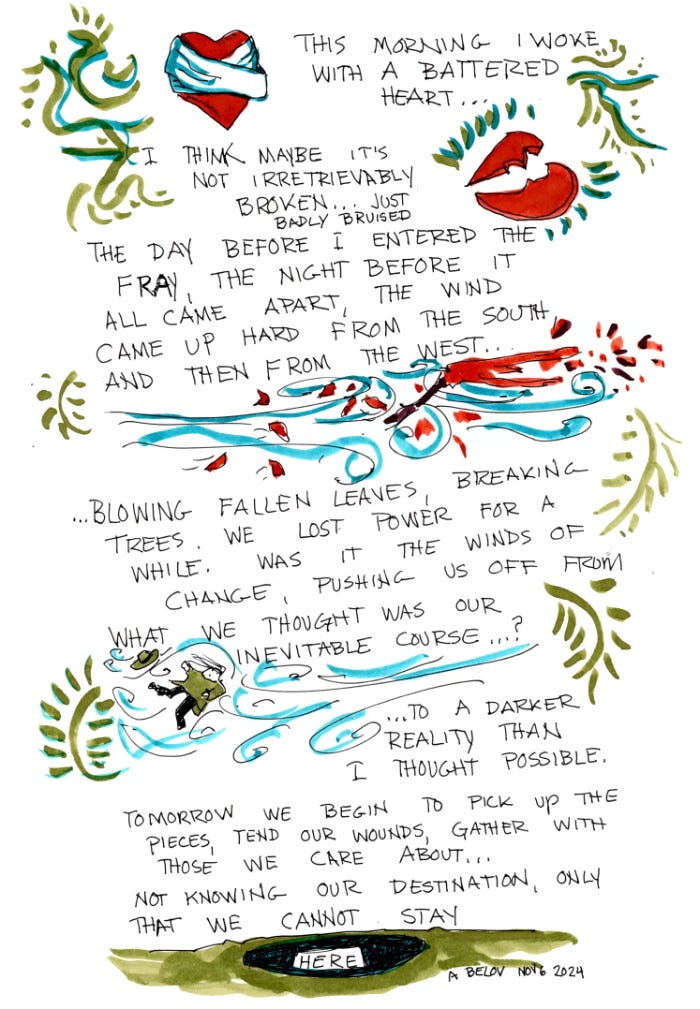 THIS MORNING I WOKE
WITH A BATTERED
HEART...
I THINK MAYBE IT'S
NOT IRRETRIEVABLY
BROKEN... JUST
BADLY BRUISED
THE DAY BEFORE I ENTERED THE
FRAY, THE NIGHT BEFORE IT
ALL CAME APART, THE WIND
CAME UP HARD FROM THE SOUTH,
AND THEN FROM THE WEST...
...BLOWING FALLEN LEAVES, BREAKING
TREES. WE LOST POWER FOR A
WHILE. WAS IT THE WINDS OF
CHANGE, PUSHING US OFF FROM
WHAT WE THOUGHT WAS OUR
INEVITABLE COURSE...?
...TO A DARKER
REALITY THAN
I THOUGHT POSSIBLE.
TOMORROW WE BEGIN TO PICK UP THE
PIECES, TEND OUR WOUNDS, GATHER WITH
THOSE WE CARE ABOUT...
NOT KNOWING OUR DESTINATION, ONLY
THAT WE CANNOT STAY
HERE
A BELOV NOV 6 2024